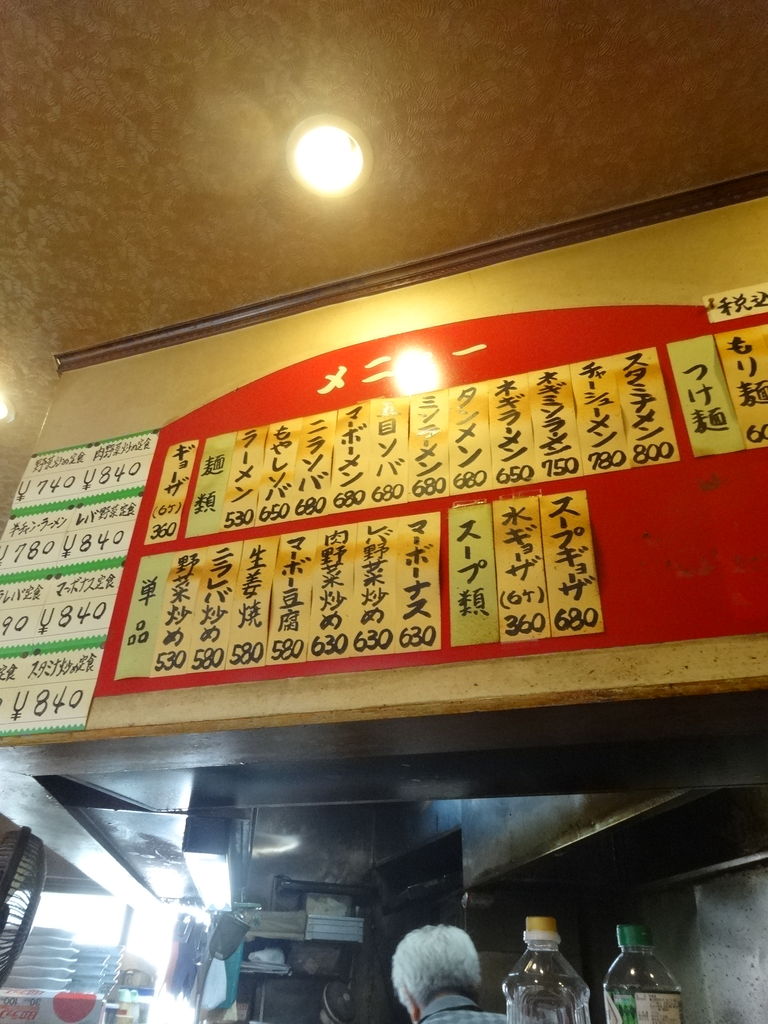 メニュー
税込
ギョーザ (6ケ) 360
麺類
ラーメン 530
もやしソバ 650
ニラソバ 680
マーボーメン 680
五目ソバ 680
ミソラーメン 680
タンメン 680
ネギラーメン 650
ネギミソラーメン 750
チャーシューメン 780
スタミナメン 800
つけ麺
もり麺
単品
野菜炒め 530
ニラレバ炒め 580
生姜焼 580
マーボー豆腐 580
肉野菜炒め 630
レバ野菜炒め 630
マーボーナス 630
スープ類
水ギョーザ (6ケ) 360
スープギョーザ 680
野菜炒め定食 ¥740
肉野菜炒め定食 ¥840
半チャン・ラーメン ¥780
レバ野菜定食 ¥840
レバ定食 90
マーボナス定食 ¥840
定食
スタミナ炒め定食 ¥840